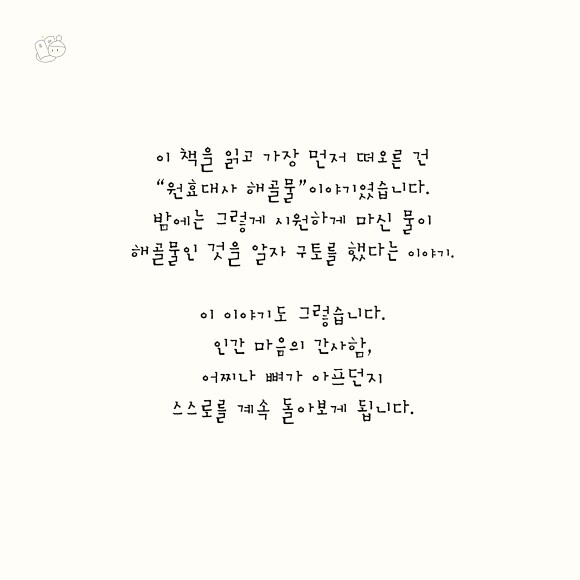 이 책을 읽고 가장 먼저 떠오른 건
“원효대사 해골물”이야기였습니다.
밤에는 그렇게 시원하게 마신 물이
해골물인 것을 알자 구토를 했다는 이야기.
이 이야기도 그렇습니다.
인간 마음의 간사함,
어찌나 뼈가 아프던지
스스로를 계속 돌아보게 됩니다.